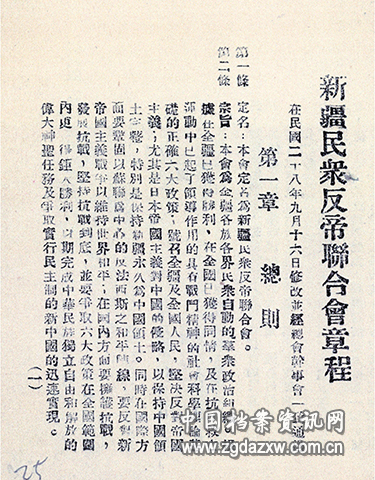 新疆民衆反帝聯合會章程
在民國二十八年九月十六日修改並經總會幹事會 通
第一章 總則
第一條 定名:本會定名為新疆民衆反帝聯合會。
第二條 宗旨:本會為全疆各族各界民衆自動的羣衆政治組織,
在全疆已獲得勝利,在全國已獲得同情,及在抗 救
運動中已起了領導作用的具有戰鬥精神的社會科學
礎的正確六大政策,號召全疆及全國人民,堅決反對帝國
主義,尤其是日本帝國主義對中國的侵略,以保持中國領
土主權,特別是保持新疆永久為中國領土。同時在國際方
面要鞏固以蘇聯為中心的反法西斯之和平陣線,要反對新
帝國主義戰爭以維持世界和平;在國內方面要擁護抗戰,
發展抗戰,堅持抗戰到底,並要爭取六大政策在全國範圍
內更 勝利,以期完成中華民族獨立自由和解放的
偉大神聖任務及爭取實行民主制的新中國的迅速實現。
(一)
25
中国档案资讯网
www.zgdazxw.com.cn